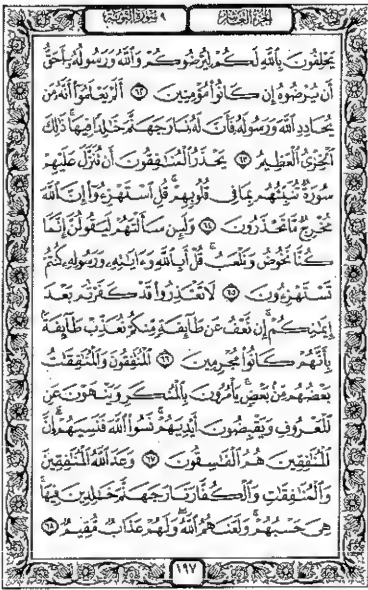 الجزء العاشر
٩ سورة التوبة
يَحْلِفُونَ بِٱللَّهِ لَكُمْ لِيُرْضُوكُمْ وَٱللَّهُ وَرَسُولُهُۥٓ أَحَقُّ
أَن يُرْضُوهُ إِن كَانُوا۟ مُؤْمِنِينَ ٦٢ أَلَمْ يَعْلَمُوٓا۟ أَنَّهُۥ مَن
يُحَادِدِ ٱللَّهَ وَرَسُولَهُۥ فَأَنَّ لَهُۥ نَارَ جَهَنَّمَ خَٰلِدًا فِيهَا ۚ ذَٰلِكَ
ٱلْخِزْىُ ٱلْعَظِيمُ ٦٣ يَحْذَرُ ٱلْمُنَٰفِقُونَ أَن تُنَزَّلَ عَلَيْهِمْ
سُورَةٌ تُنَبِّئُهُم بِمَا فِى قُلُوبِهِمْ ۚ قُلِ ٱسْتَهْزِءُوٓا۟ إِنَّ ٱللَّهَ
مُخْرِجٌ مَّا تَحْذَرُونَ ٦٤ وَلَئِن سَأَلْتَهُمْ لَيَقُولُنَّ إِنَّمَا
كُنَّا نَخُوضُ وَنَلْعَبُ ۚ قُلْ أَبِٱللَّهِ وَءَايَٰتِهِۦ وَرَسُولِهِۦ كُنتُمْ
تَسْتَهْزِءُونَ ٦٥ لَا تَعْتَذِرُوا۟ قَدْ كَفَرْتُم بَعْدَ
إِيمَٰنِكُمْ ۚ إِن نَّعْفُ عَن طَآئِفَةٍ مِّنكُمْ نُعَذِّبْ طَآئِفَةًۢ
بِأَنَّهُمْ كَانُوا۟ مُجْرِمِينَ ٦٦ ٱلْمُنَٰفِقُونَ وَٱلْمُنَٰفِقَٰتُ
بَعْضُهُم مِّنۢ بَعْضٍ ۚ يَأْمُرُونَ بِٱلْمُنكَرِ وَيَنْهَوْنَ عَنِ
ٱلْمَعْرُوفِ وَيَقْبِضُونَ أَيْدِيَهُمْ ۚ نَسُوا۟ ٱللَّهَ فَنَسِيَهُمْ ۗ إِنَّ
ٱلْمُنَٰفِقِينَ هُمُ ٱلْفَٰسِقُونَ ٦٧ وَعَدَ ٱللَّهُ ٱلْمُنَٰفِقِينَ
وَٱلْمُنَٰفِقَٰتِ وَٱلْكُفَّارَ نَارَ جَهَنَّمَ خَٰلِدِينَ فِيهَا ۚ
هِىَ حَسْبُهُمْ ۚ وَلَعَنَهُمُ ٱللَّهُ ۖ وَلَهُمْ عَذَابٌ مُّقِيمٌ ٦٨
١٩٧